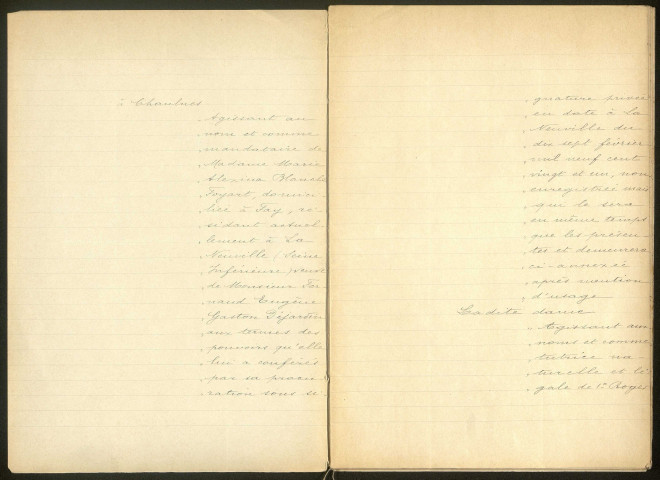 à Chaulnes
Agissant au
nom et comme
mandataire de
Madame Marie
Alexina Blanche
Foyart, domici-
liée à Fay, ré-
sidant actuel-
lement à La
Neuville (Seine
Inférieure) veuve
de Monsieur Fer-
nand Eugène
Gaston
aux termes des
pouvoirs qu'elle
lui a conférés
par sa procu-
ration sous si-
gnature privée
en date à La
Neuville du
dix sept février
mil neuf cent
vingt et un, non
enregistrée mais
qui le sera
en même temps
que les présen-
tes et demeurera
ci-annexée
après mention
d'usage
Ladite dame
Agissant aux
noms et comme
tutrice na-
turelle et lé-
gale de 1° Roger